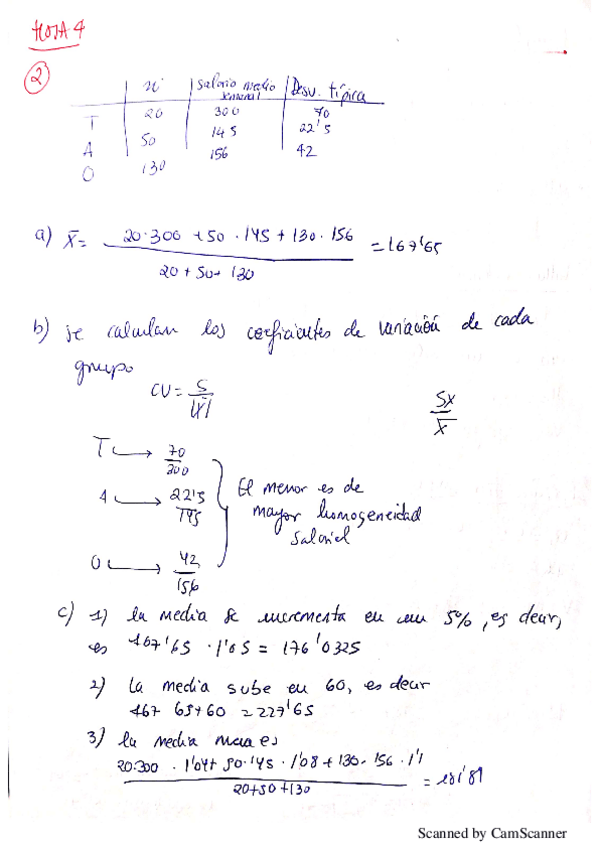 HOJA 4
2
ni | salario medio semanal | Desv. típica
T 20 300 70
A 50 145 22'5
O 130 156 42
a) x̄ = (20·300 + 50·145 + 130·156) / (20 + 50 + 130) = 167'65
b) se calculan los coeficientes de variación de cada
grupo
CV = S / |x̄|
Sx / x̄
T → 70 / 300
A → 22'5 / 145
O → 42 / 156
El menor es de
mayor homogeneidad
salarial
c) 1) la media se incrementa en un 5%, es decir,
es 167'65 · 1'05 = 176'0325
2) la media sube en 60, es decir
167 65+60 = 227'65
3) la media nueva es
(20·300 · 1'04 + 50·145 · 1'08 + 130·156 · 1'1) / (20+50+130) = 181'89
Scanned by CamScanner